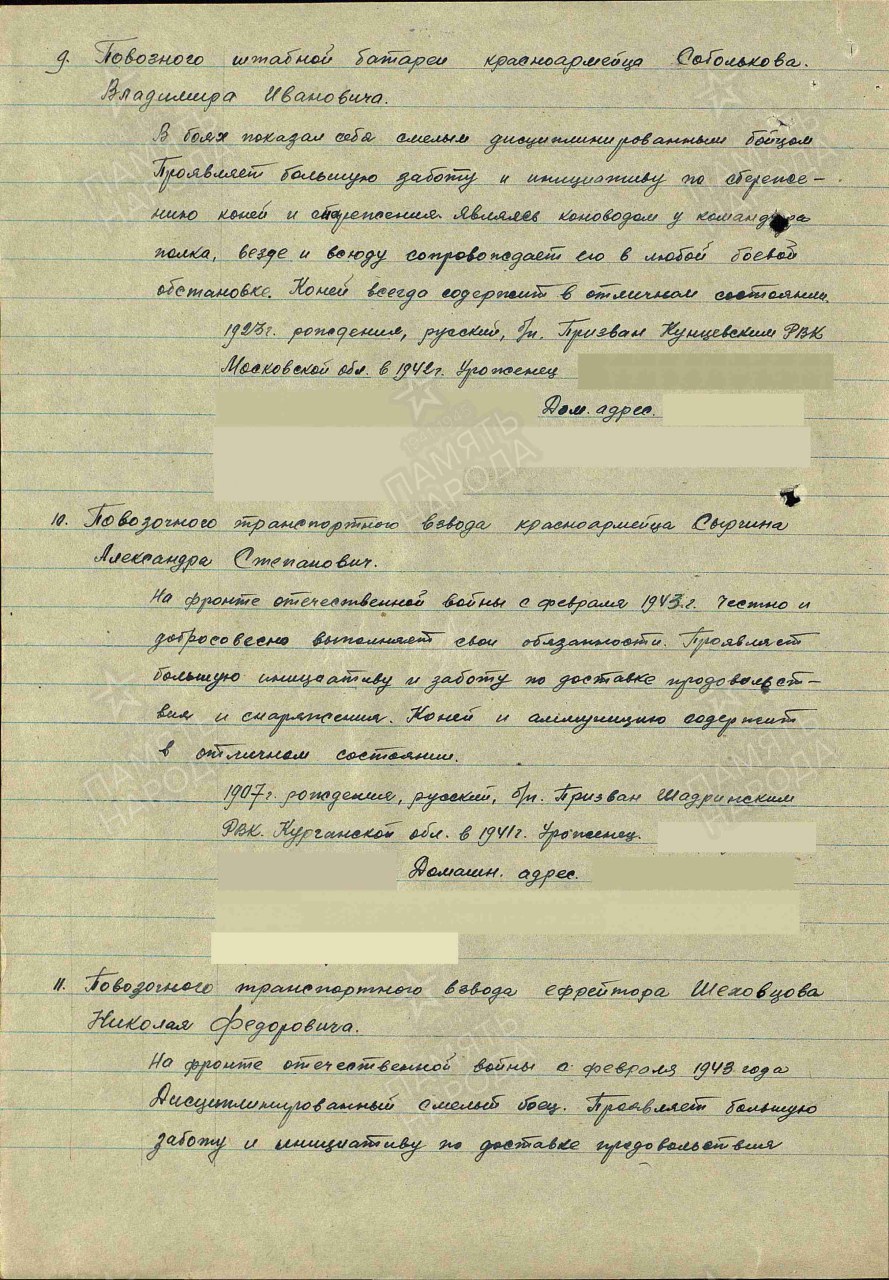 9. Повозного штабной батареи красноармейца Соболькова.
Владимира Ивановича.
В боях показал себя смелым дисциплинированным бойцом
Проявляет большую заботу и инициативу по сбереже-
нию коней и снаряжения. Являясь коноводом у командира
полка, везде и всюду сопровождает его в любой боевой
обстановке. Коней всегда содержит в отличном состоянии.
1923г. рождения, русский, б/п. Призван Кунцевским РВК
Московской обл. в 1942г. Уроженец
Дом. адрес.
10. Повозочного транспортного взвода красноармейца Сыргина
Александра Степанович.
На фронте отечественной войны с февраля 1943.г. Честно и
добросовесно выполняет свои обязанности. Проявляет
большую инициативу и заботу по доставке продовольст-
вия и снаряжения. Коней и аммуницию содержит
в отличном состоянии.
1907г. рождения, русский, б/п. Призван Шадринским
РВК. Курганской обл. в 1941г. Уроженец.
Домашн. адрес.
11. Повозочного транспортного взвода ефрейтора Шеховцова
Николая Федоровича.
На фронте отечественной войны с февраля 1943 года
Дисциплинированный смелый боец. Проявляет большую
заботу и инициативу по доставке продовольствия
ПАМЯТЬ НАРОДА